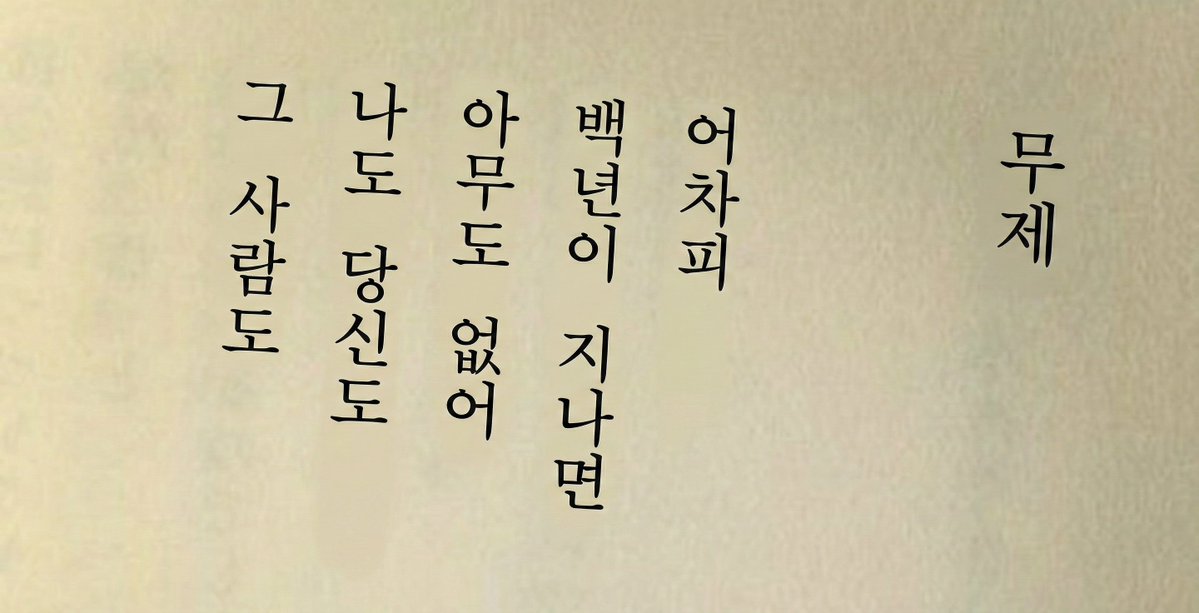 무제
어차피
백년이 지나면
아무도 없어
나도 당신도
그 사람도